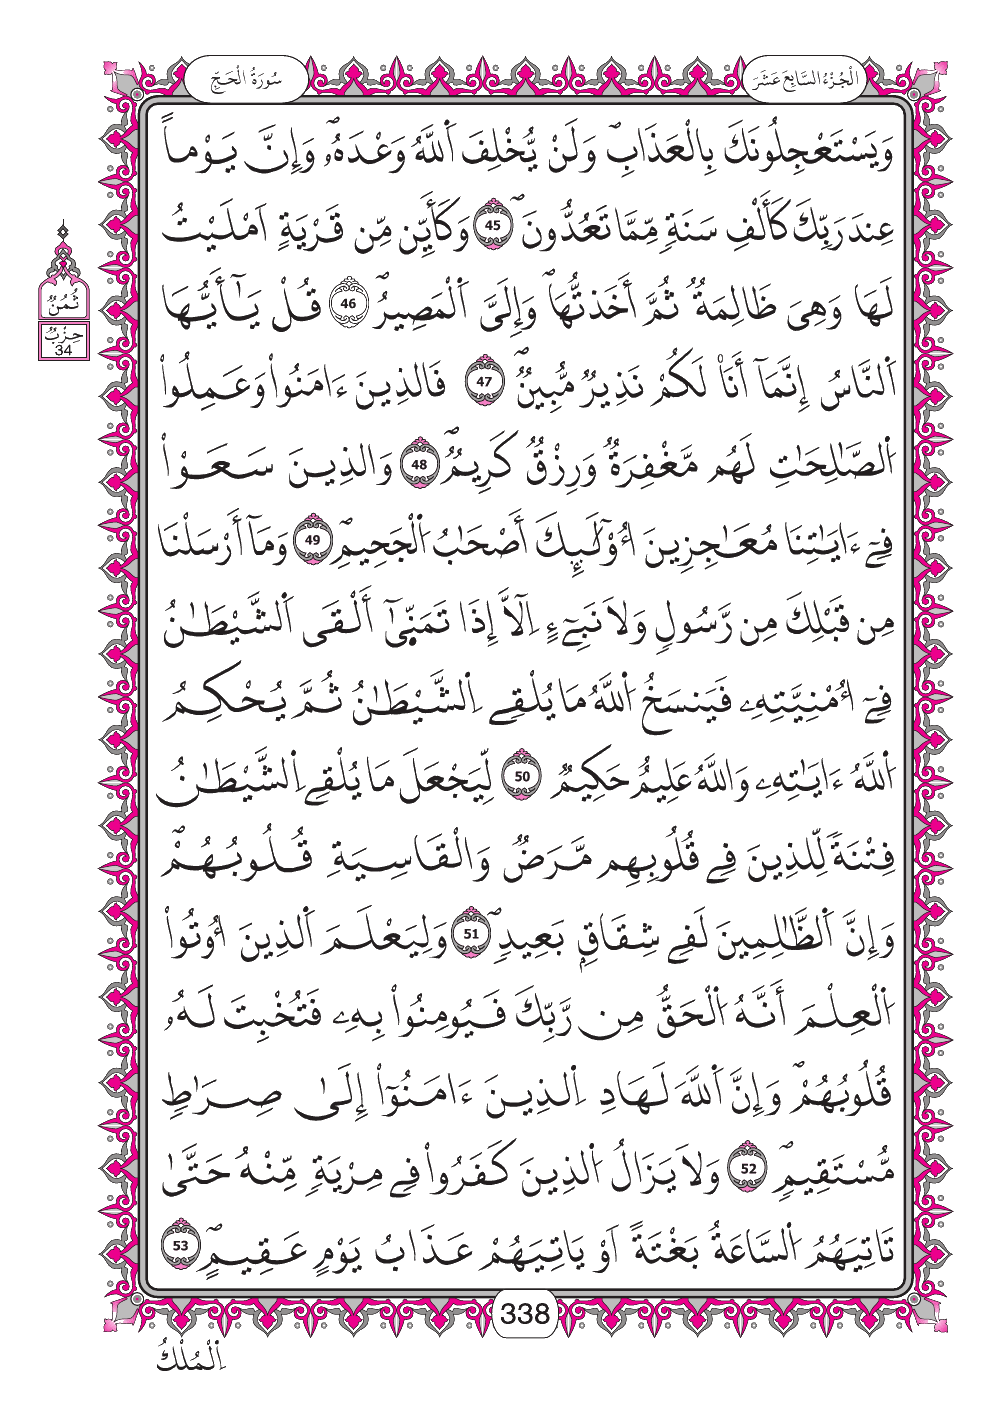 الْجُزْءُ السَّابِعَ عَشَرَ
سُورَةُ الْحَجِّ
وَيَسْتَعْجِلُونَكَ بِالْعَذَابِۖ وَلَنْ يُّخْلِفَ اَ۬للَّهُ وَعْدَهُۥۖ وَإِنَّ يَوْماً
عِندَ رَبِّكَ كَأَلْفِ سَنَةٖ مِّمَّا تَعُدُّونَۖ 45 وَكَأَيِّن مِّن قَرْيَةٍ اَمْلَيْتُ
لَهَا وَهِيَ ظَالِمَةٞ ثُمَّ أَخَذتُّهَاۖ وَإِلَيَّ اَ۬لْمَصِيرُۖ 46 قُلْ يَٰٓأَيُّهَا
اَ۬لنَّاسُ إِنَّمَآ أَنَا۠ لَكُمْ نَذِيرٞ مُّبِينٞۖ 47 فَالذِينَ ءَامَنُواْ وَعَمِلُواْ
اُ۬لصَّٰلِحَٰتِ لَهُم مَّغْفِرَةٞ وَرِزْقٞ كَرِيمٞۖ 48 وَالذِينَ سَعَوْاْ
فِےٓ ءَايَٰتِنَا مُعَٰجِزِينَ أُوْلَٰٓئِكَ أَصْحَٰبُ اُ۬لْجَحِيمِۖ 49 وَمَآ أَرْسَلْنَا
مِن قَبْلِكَ مِن رَّسُولٖ وَلَا نَبِےٓءٍ اِلَّآ إِذَا تَمَنّ۪يٰٓ أَلْقَي اَ۬لشَّيْطَٰنُ
فِےٓ أُمْنِيَّتِهِۦ فَيَنسَخُ اُ۬للَّهُ مَا يُلْقِے اِ۬لشَّيْطَٰنُ ثُمَّ يُحْكِمُ
اُ۬للَّهُ ءَايَٰتِهِۦ وَاللَّهُ عَلِيمٌ حَكِيمٞ 50 لِّيَجْعَلَ مَا يُلْقِے اِ۬لشَّيْطَٰنُ
فِتْنَةٗ لِّلذِينَ فِے قُلُوبِهِم مَّرَضٞ وَالْقَاسِيَةِ قُلُوبُهُمْۖ
وَإِنَّ اَ۬لظَّٰلِمِينَ لَفِے شِقَاقِۢ بَعِيدٖۖ 51 وَلِيَعْلَمَ اَ۬لذِينَ أُوتُواْ
اُ۬لْعِلْمَ أَنَّهُ اُ۬لْحَقُّ مِن رَّبِّكَ فَيُومِنُواْ بِهِۦ فَتُخْبِتَ لَهُۥ
قُلُوبُهُمْۖ وَإِنَّ اَ۬للَّهَ لَهَادِ اِ۬لذِينَ ءَامَنُوٓاْ إِلَىٰ صِرَٰطٖ
مُّسْتَقِيمٖۖ 52 وَلَا يَزَالُ اُ۬لذِينَ كَفَرُواْ فِے مِرْيَةٖ مِّنْهُ حَتَّىٰ
تَاتِيَهُمُ اُ۬لسَّاعَةُ بَغْتَةً اَوْ يَاتِيَهُمْ عَذَابُ يَوْمٍ عَقِيمٍۖ 53
ثُمُنٌ
حِزْبٌ
34
338
اِ۬لْمُلْكُ